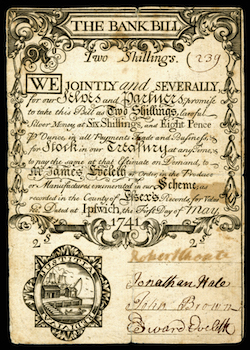 THE BANK BILL
Two Shillings. (239)
WE JOINTLY and SEVERALLY,
for our Selves and Partners, promise
to take this Bill as Two Shillings, lawful
Silver Money, at Six Shillings and Eight Pence
Ounce, in all Payments, Trade and Business,
for Stock in our Treasury at any Time,
to pay the same at that Estimate on Demand, to
Mr James Eveleth or Order, in the Produce
or Manufactures enumerated in our Scheme; as
recorded in the County of Essex's Records for Value
Dated at Ipswich, the First Day of May,
1741.
2s 2s
Robert Choate
Jonathan Hale
John Brown
Edward Eveleth